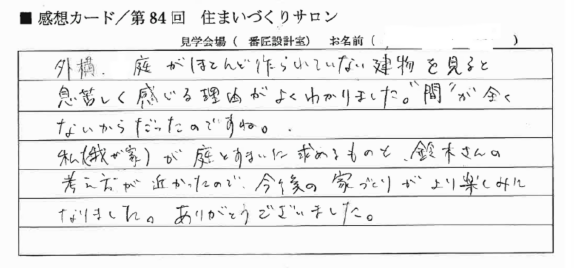 ■ 感想カード／第84回 住まいづくりサロン
見学会場（ 番匠設計室） お名前（
外構、庭がほとんど作られていない建物を見ると
息苦しく感じる理由がよくわかりました。"間"が全く
ないからだったのですね。
私（我が家）が庭とすまいに求めるものと、鈴木さんの
考え方が近かったので、今後の家づくりがより楽しみに
なりました。ありがとうございました。